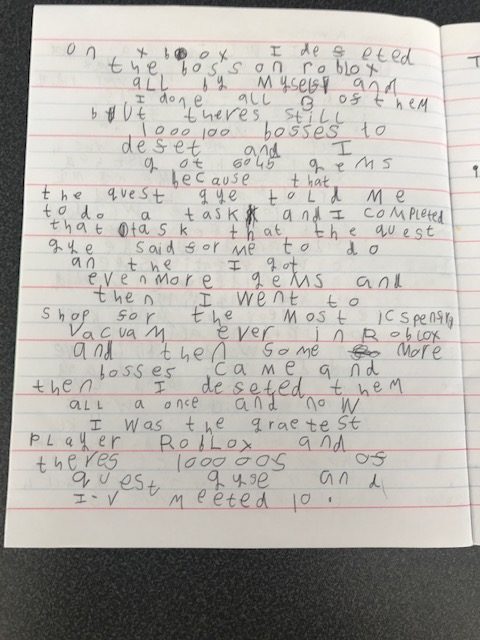 on xbox I defeted
the boss on roblox
all by myself and
I done all 3 of them
but theres still
1000100 bosses to
defet and I
got 6045 gems
because that
the quest gye told me
to do a task and I completed
that task that the quest
gye said for me to do
an the I got
even more gems and
then I went to
shop for the most
Vacuam ever in Roblox
and then some more
bosses came and
then I defeted them
all a once and now
I was the graetest
player Roblox and
theres 1000005 of
quest gyse and
I-v meeted 10.